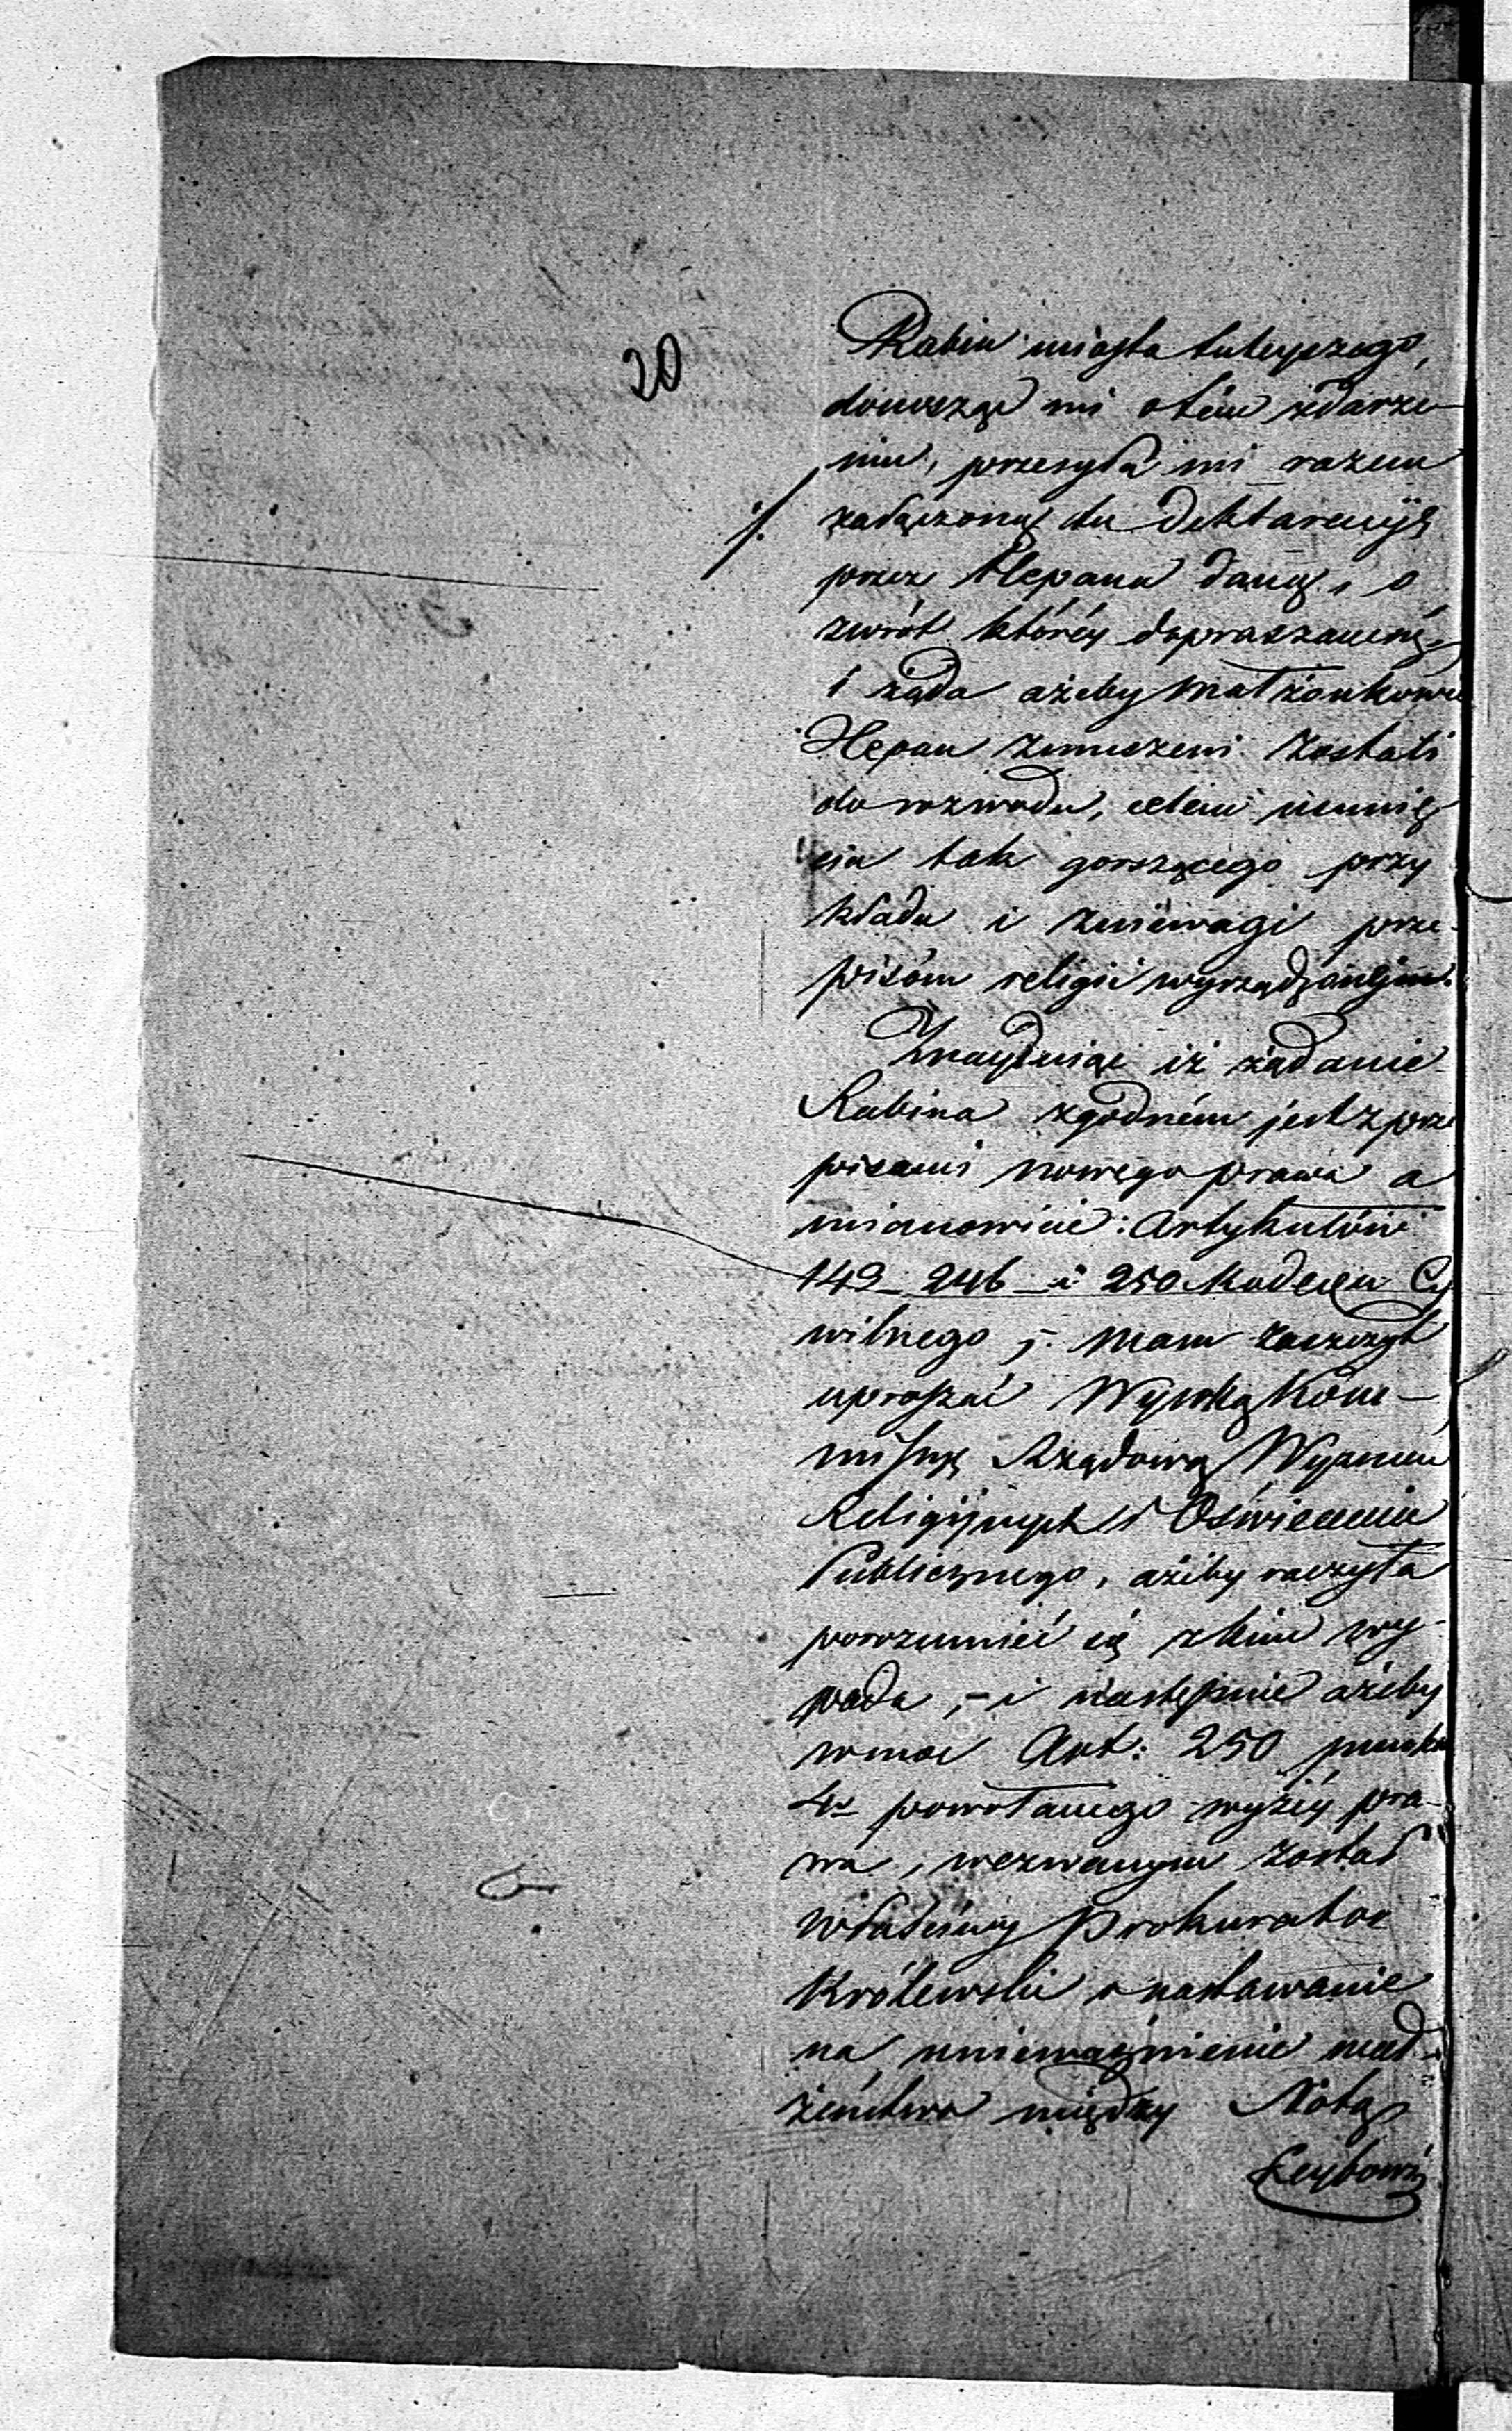 20
Rabin miasta tuteyszego,
donosząc mi o tém zdarze-
niu, przesyła mi razem
załączoną tu Deklaracyią
przez Hepana daną, o
zwrót któréy dopraszam się,
i żąda ażeby małżonkowie
Hepan zmuszeni zostali
do rozwodu, celem usunię
cia tak gorszącego przy
kładu i zniewagi prze-
pisóm religii wyrządzonéj.
Znayduiąc iż żądanie
Rabina zgodném jest z prze
pisami nowego prawa a
mianowicie: Artykułów
149_ 246 _ i 250 Kodexu Cy
wilnego ;- mam zaszczyt
upraszać Wysoką Kom-
missyę Rządową Wyznań
Religiynych i Oświecenia
Publicznego, ażeby raczyła
porozumieć się z kim wy-
pada ,- i następnie ażeby
w moc Art: 250 punktu
4o powołanego wyżéy pra-
wa , wezwanym został
właściwy Prokurator
Królewski o nastawanie
na unieważnienie mał-
żeństwa między Notą
Leybowi